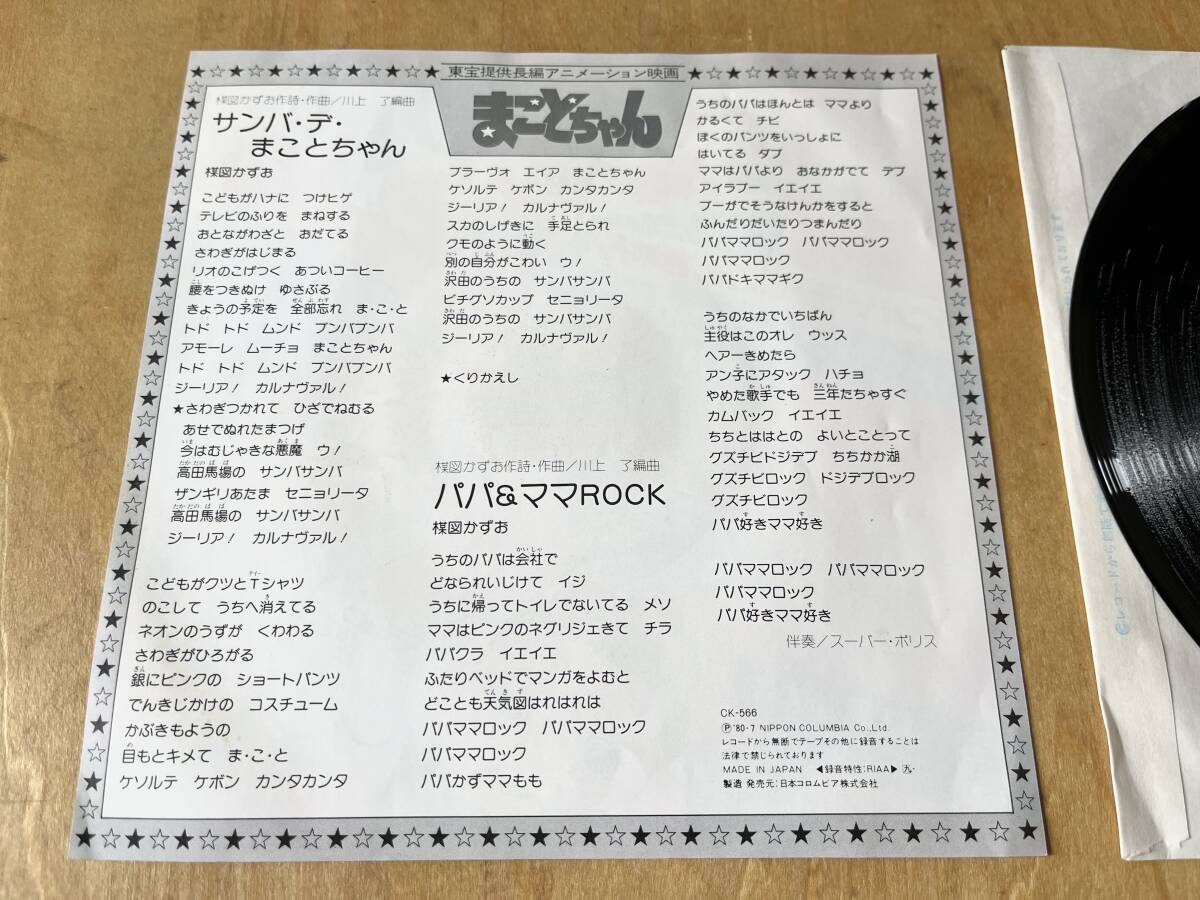 東宝提供長編アニメーション映画
まことちゃん
楳図かずお作詩・作曲/川上 了編曲
サンバ・デ・
まことちゃん
楳図かずお
こどもがハナに つけヒゲ
テレビのふりを まねする
おとながわざと おだてる
さわぎがはじまる
リオのこげつく あついコーヒー
腰をつきぬけ ゆさぶる
きょうの予定を 全部忘れ ま・こ・と
トド トド ムンド ブンバブンバ
アモーレ ムーチョ まことちゃん
トド トド ムンド ブンバブンバ
ジーリア! カルナヴァル!
★さわぎつかれて ひざでねむる
あせでぬれたまつげ
今はむじゃきな悪魔 ウ!
高田馬場の サンバサンバ
ザンギリあたま セニョリータ
高田馬場の サンバサンバ
ジーリア! カルナヴァル!
こどもがクツとTシャツ
のこして うちへ消えてる
ネオンのうずが くわわる
さわぎがひろがる
銀にピンクの ショートパンツ
でんきじかけの コスチューム
かぶきもようの
目もとキメて ま・こ・と
ケソルテ ケボン カンタカンタ
ブラーヴォ エイア まことちゃん
ケソルテ ケボン カンタカンタ
ジーリア! カルナヴァル!
スカのしげきに 手足とられ
クモのように動く
別の自分がこわい ウ!
沢田のうちの サンバサンバ
ビチグソカップ セニョリータ
沢田のうちの サンバサンバ
ジーリア! カルナヴァル!
★くりかえし
楳図かずお作詩・作曲/川上 了編曲
パパ&ママROCK
楳図かずお
うちのパパは会社で
どなられいじけて イジ
うちに帰ってトイレでないてる メソ
ママはピンクのネグリジェきて チラ
パパクラ イエイエ
ふたりベッドでマンガをよむと
どことも天気図はれはれは
パパママロック パパママロック
パパママロック
パパかずママもも
うちのパパはほんとは ママより
かるくて チビ
ぼくのパンツをいっしょに
はいてる ダブ
ママはパパより おなかがでて デブ
アイラブー イエイエ
ブーがでそうなけんかをすると
ふんだりだいたりつまんだり
パパママロック パパママロック
パパママロック
パパドキママギク
うちのなかでいちばん
主役はこのオレ ウッス
ヘアーきめたら
アン子にアタック ハチョ
やめた歌手でも 三年たちゃすぐ
カムバック イエイエ
ちちとははとの よいとことって
グズチビドジデブ ちちかか湖
グズチビロック ドジデブロック
グズチビロック
パパ好きママ好き
パパママロック パパママロック
パパママロック
パパ好きママ好き
伴奏/スーパー・ポリス
CK-566
Ⓟ'80・7 NIPPON COLUMBIA Co.,Ltd.
レコードから無断でテープその他に録音することは
法律で禁じられております
MADE IN JAPAN ◀録音特性:RIAA▶
製造 発売元:日本コロムビア株式会社